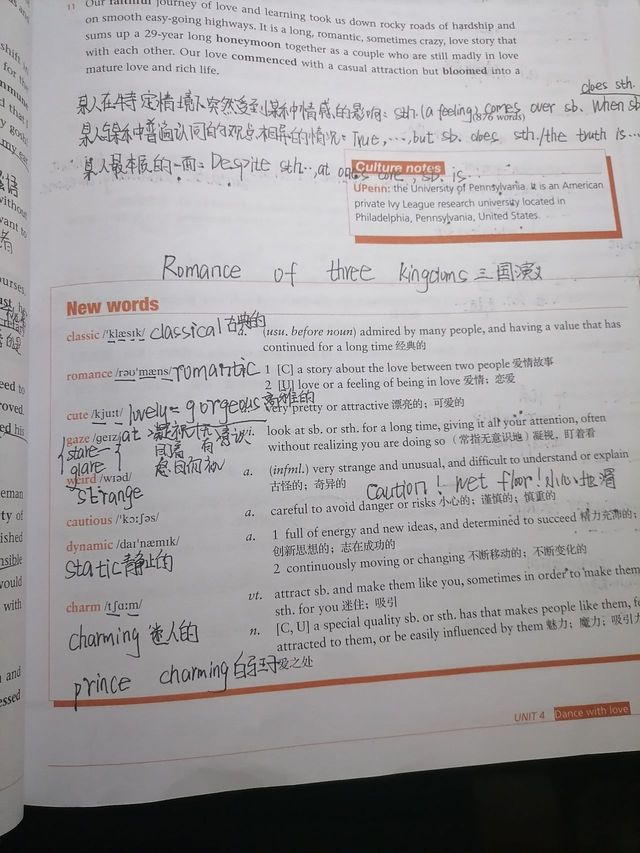 11 Our faithful journey of love and learning took us down rocky roads of hardship and
on smooth easy-going highways. It is a long, romantic, sometimes crazy, love story that
sums up a 29-year long honeymoon together as a couple who are still madly in love
with each other. Our love commenced with a casual attraction but bloomed into a
mature love and rich life.
does sth.
某人在特定情境下突然受到某种情感的影响: sth. (a feeling) comes over sb. when sb
(876 words)
某人与某种普遍认同的观点相异的情况: True, ..., but sb. does sth./the truth is...
某人最本质的一面: Despite sth..., at one's core, sb. is...
Culture notes
UPenn: the University of Pennsylvania. It is an American
private Ivy League research university located in
Philadelphia, Pennsylvania, United States.
Romance of three kingdoms 三国演义
New words
classic /'klæsɪk/ classical 古典的 a. (usu. before noun) admired by many people, and having a value that has
continued for a long time 经典的
romance /rəʊ'mæns/ romantic 1 [C] a story about the love between two people 爱情故事
2 [U] love or a feeling of being in love 爱情；恋爱
cute /kjuːt/ lovely = gorgeous very pretty or attractive 漂亮的；可爱的
gaze /geɪz/ at 凝视 vi. look at sb. or sth. for a long time, giving it all your attention, often
without realizing you are doing so （常指无意识地）凝视，盯着看
stare
glare 怒目而视
weird /wɪəd/ a. (infml.) very strange and unusual, and difficult to understand or explain
古怪的；奇异的
strange
Caution! wet floor! 小心地滑
cautious /'kɔːʃəs/ a. careful to avoid danger or risks 小心的；谨慎的；慎重的
dynamic /daɪ'næmɪk/ a. 1 full of energy and new ideas, and determined to succeed 精力充沛的；
创新思想的；志在成功的
static 静止的
2 continuously moving or changing 不断移动的；不断变化的
charm /tʃɑːm/ vt. attract sb. and make them like you, sometimes in order to make them
sth. for you 迷住；吸引
charming 迷人的
n. [C, U] a special quality sb. or sth. has that makes people like them, fe
attracted to them, or be easily influenced by them 魅力；魔力；吸引力
爱之处
prince charming 白马王子
UNIT 4 Dance with love